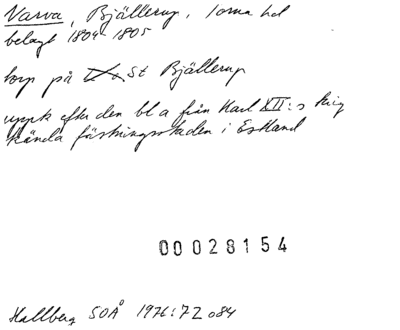 Varva, Bjällerup, Torna hd
belagt 1804 1805
torp på St Bjällerup
uppk efter den bl a från Karl XII:s krig
kända fästningsstaden i Estland
00028154
Hallberg SOÅ 1976:72 o 84